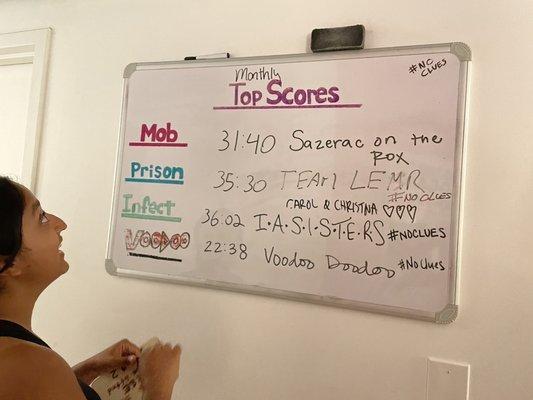 #NO CLUES
Monthly
Top Scores
Mob 31:40 Sazerac on the Rox
Prison 35:30 TEAM LEMR #NOCLUES
CAROL & CHRISTINA ♡♡♡
Infect 36:02 I.A.S.I.S.T.E.R.S #NOCLUES
VOODOO 22:38 Voodoo Doodoo #NoClues